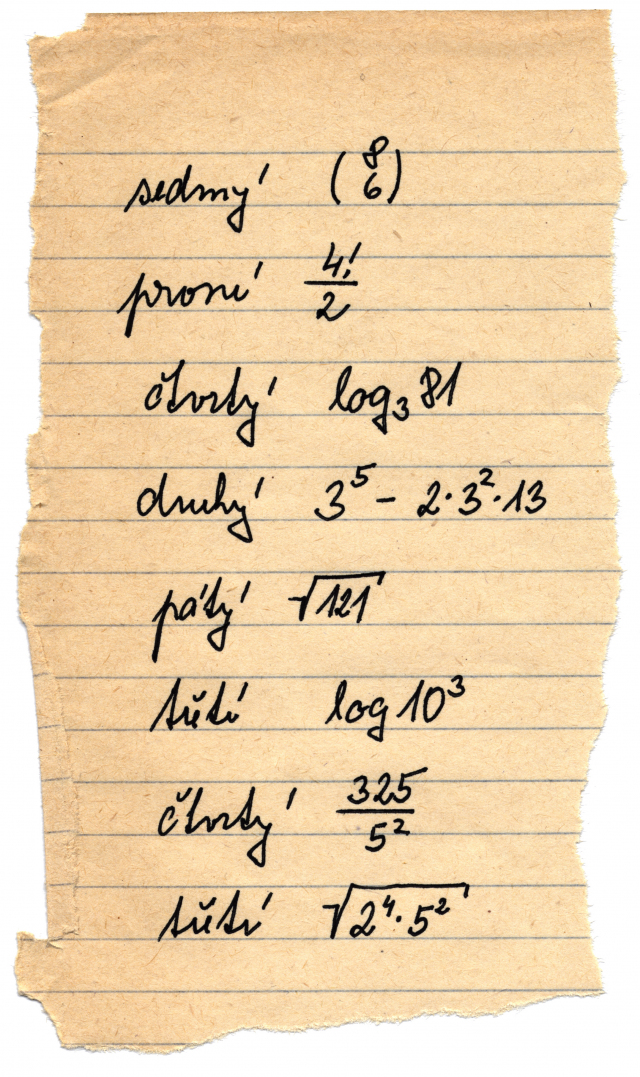 sedmý (8 6)
první 4!/2
čtvrtý log₃ 81
druhý 3⁵ - 2·3²·13
pátý √121
třetí log 10³
čtvrtý 325/5²
třetí √(2⁴·5²)